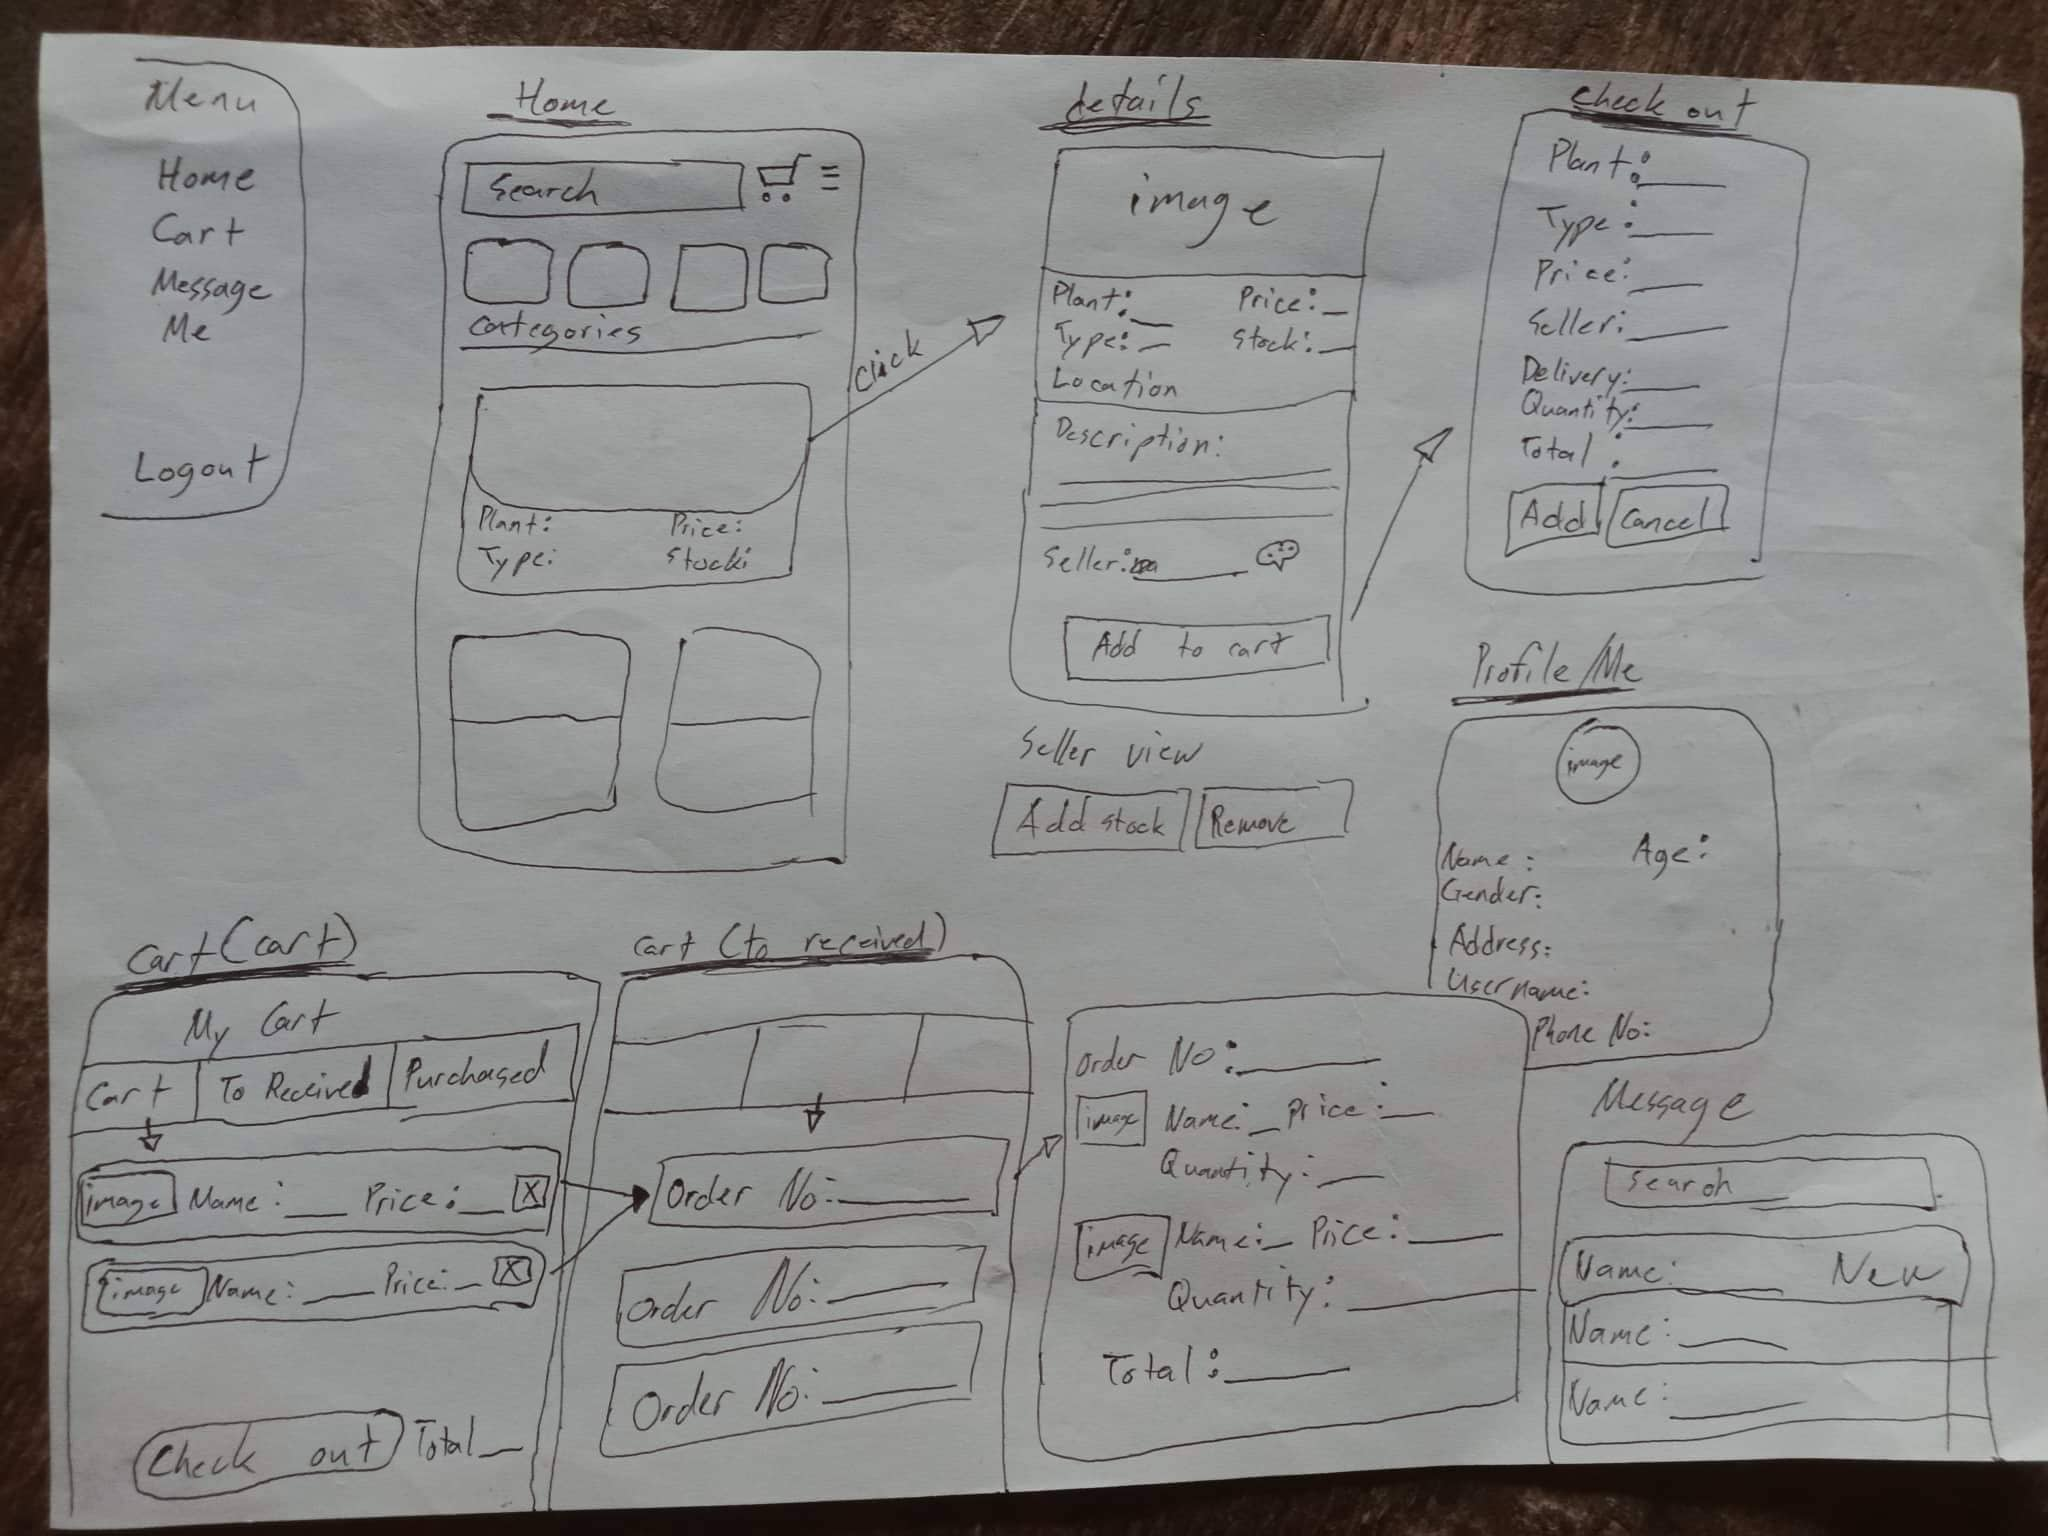 Menu
Home
Cart
Message
Me
Logout
Home
Search
Categories
Plant: Price:
Type: Stock:
Click
details
image
Plant: Price:
Type: Stock:
Location
Description:
Seller:
Add to cart
Seller view
Add stock Remove
Check out
Plant:
Type:
Price:
Seller:
Delivery:
Quantity:
Total :
Add Cancel
Profile/Me
image
Name : Age:
Gender:
Address:
Username:
Phone No:
Cart (cart)
My Cart
Cart To Received Purchased
image Name: Price: X
image Name: Price: X
Check out Total
Cart (to received)
Order No:
Order No:
Order No:
Order No:
image Name: Price:
Quantity:
image Name: Price:
Quantity:
Total :
Message
Search
Name: New
Name:
Name: